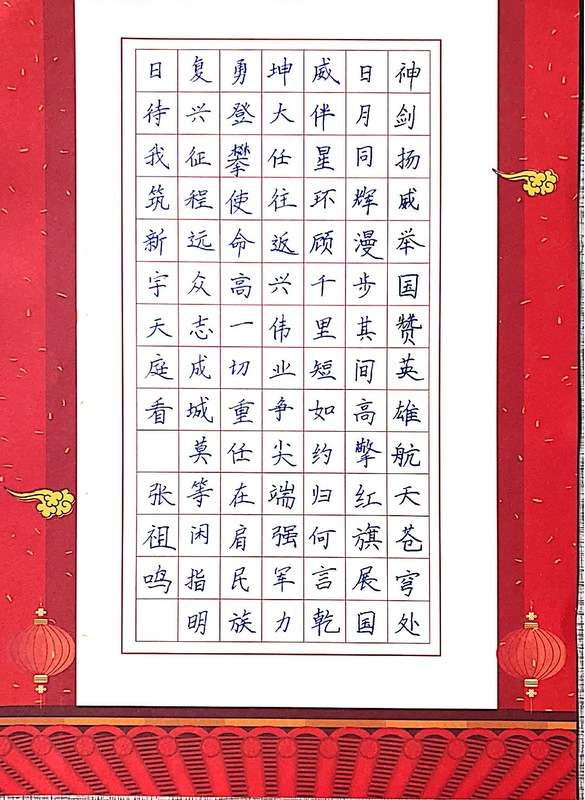 神剑扬威举国赞英雄航天苍穹处
日月同辉漫步其间高擎红旗展国
威伴星环顾千里短如约归何言乾
坤大任往返兴伟业争尖端强军力
勇登攀使命高一切重任在肩民族
复兴征程远众志成城莫等闲指明
日待我筑新宇天庭看 张祖鸣